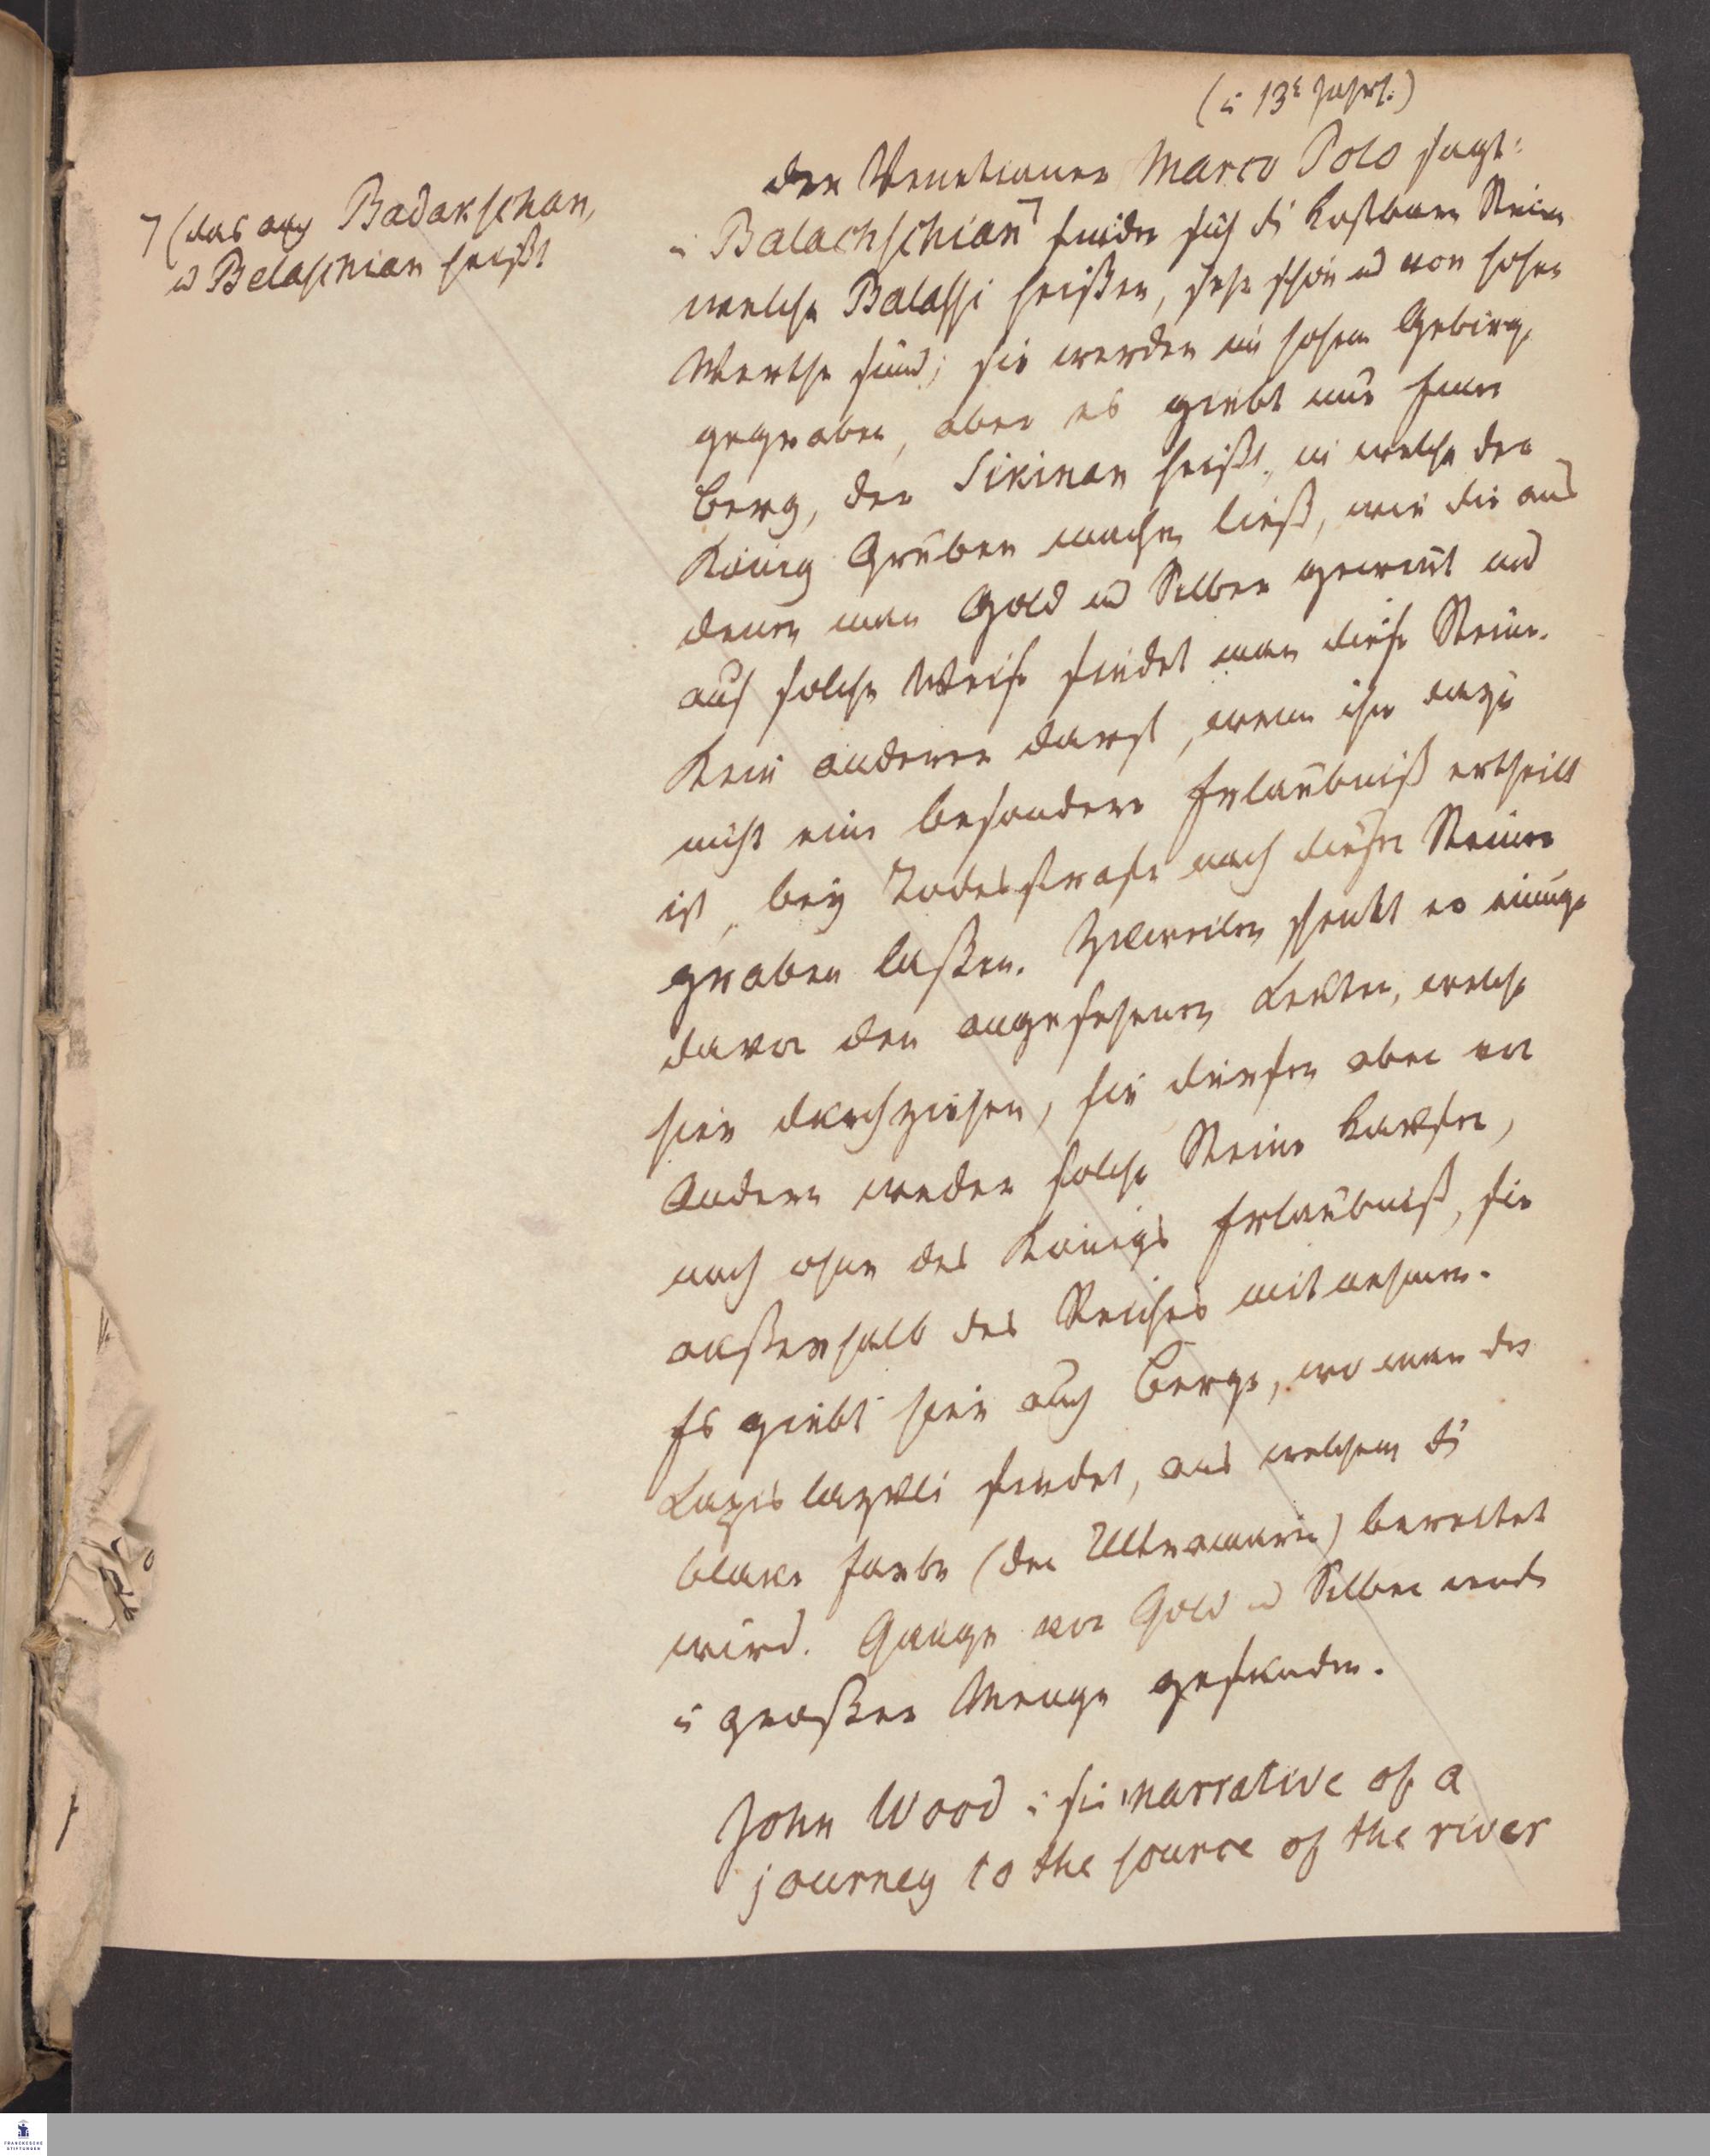 (i 13t Jahrh.)
der Venetianer Marco Polo sagt:
⁊ (das auch Badakschan,
u Belaschian heißt
i Balachschian⁊ finden sich di kostbaren Steine
welche Balassi heißen, sehr schön und von hohen
Werthe sind; sie werden im hohem Gebirge
gegraben, aber es giebt nur Einen
Berg, der Sikinan heißt, in welche der
König Gruben machen ließ, wie die aus
denen man Gold und Silber gewinnt und
auf solche Weise findet man diese Steine.
Kein anderer darf, wenn ihm dazu
nicht eine besondere Erlaubniß ertheilt
ist, bey Todesstrafe nach diesen Steinen
graben laßen. Zuweilen schenkt er einige
davon den angesehenen Leuten, welche
hier durchziehen, sie dürfen aber von
Andern weder solche Steine kaufen,
noch ohne des Königs Erlaubniß, sie
außerhalb des Reiches mitnehmen.
Es giebt hier auch Berge, wo man den
Lazis lazuli findet, aus welchem di
blaue Farbe (der Ultramarin) bereitet
wird. Gänge von Gold u Silber werden
i großer Menge gefunden.
John Wood i sr narrative of a
journey to the source of the river
FRANCKESCHE
STIFTUNGEN